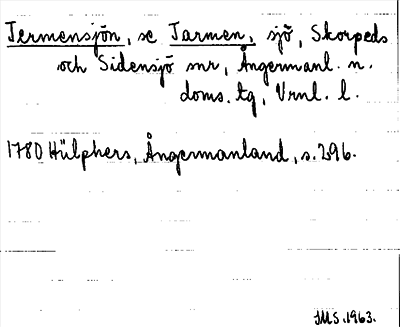 Termensjön, se Tarmen, sjö, Skorpeds
och Sidensjö snr, Ångermanl. n.
doms. tg, Vrnl. l.
1780 Hülphers, Ångermanland, s. 296.
JMS. 1963.